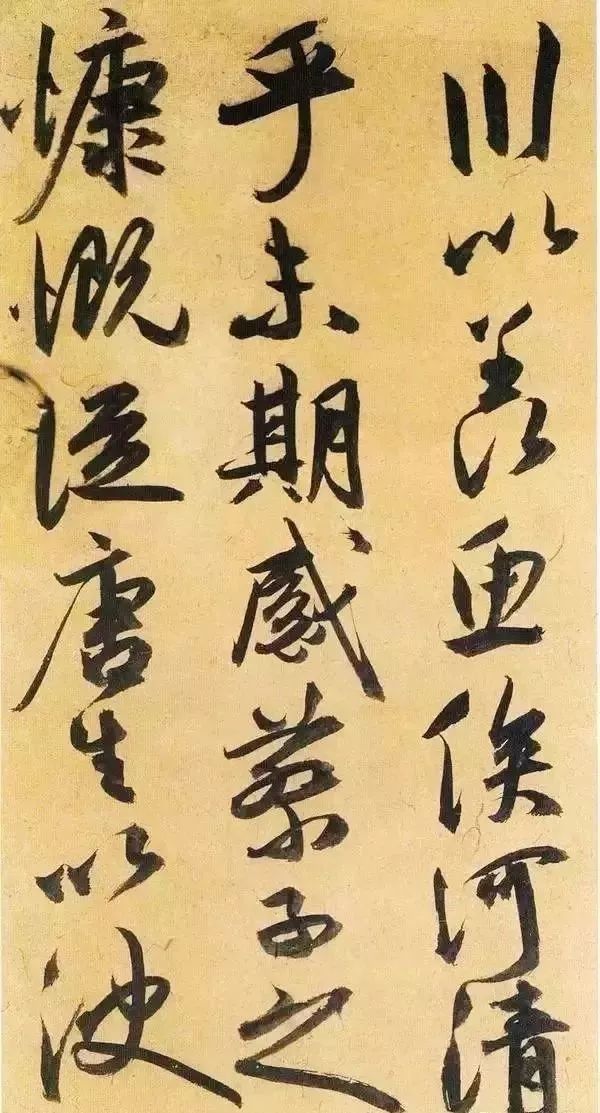 川以羡鱼俟河清
乎未期感蔡子之
慷慨従唐生以决